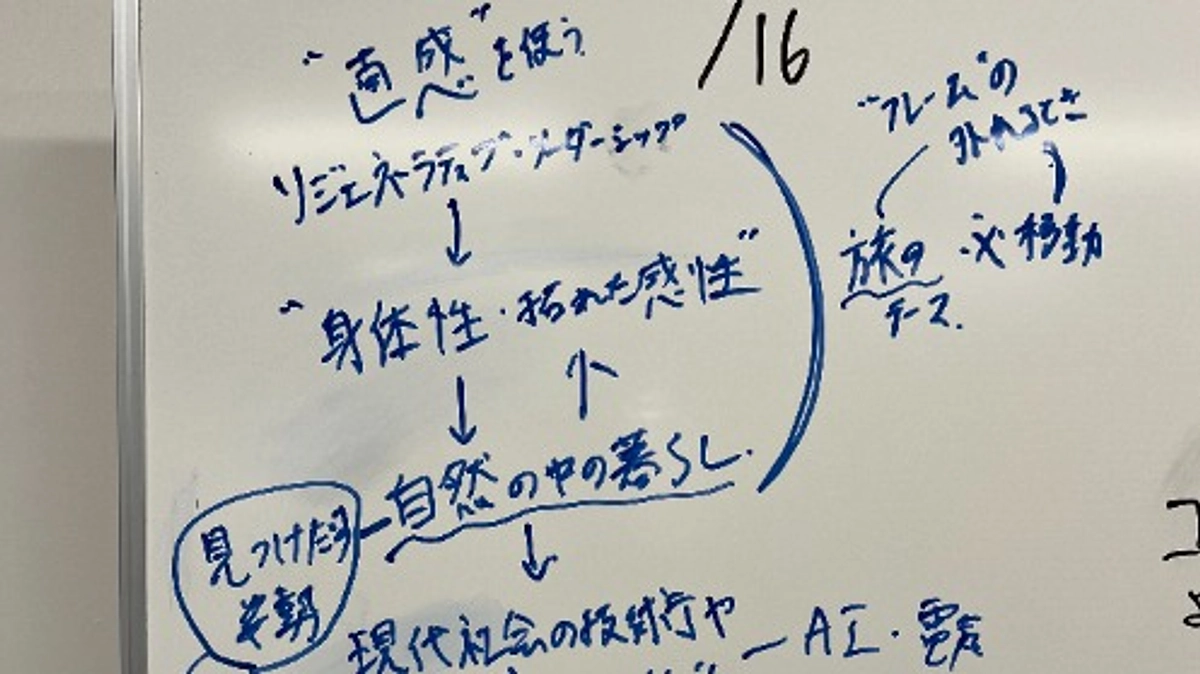 /16
"直感"を使う
リジェネラティブ・リーダーシップ
↓
"身体性・拓れた感性"
↓ ↑
自然の中の暮らし.
見つけたろ
↓
現代社会の技術や
AI・電気
"フレーム"の
外れるとき
旅の
テーマ.
移動